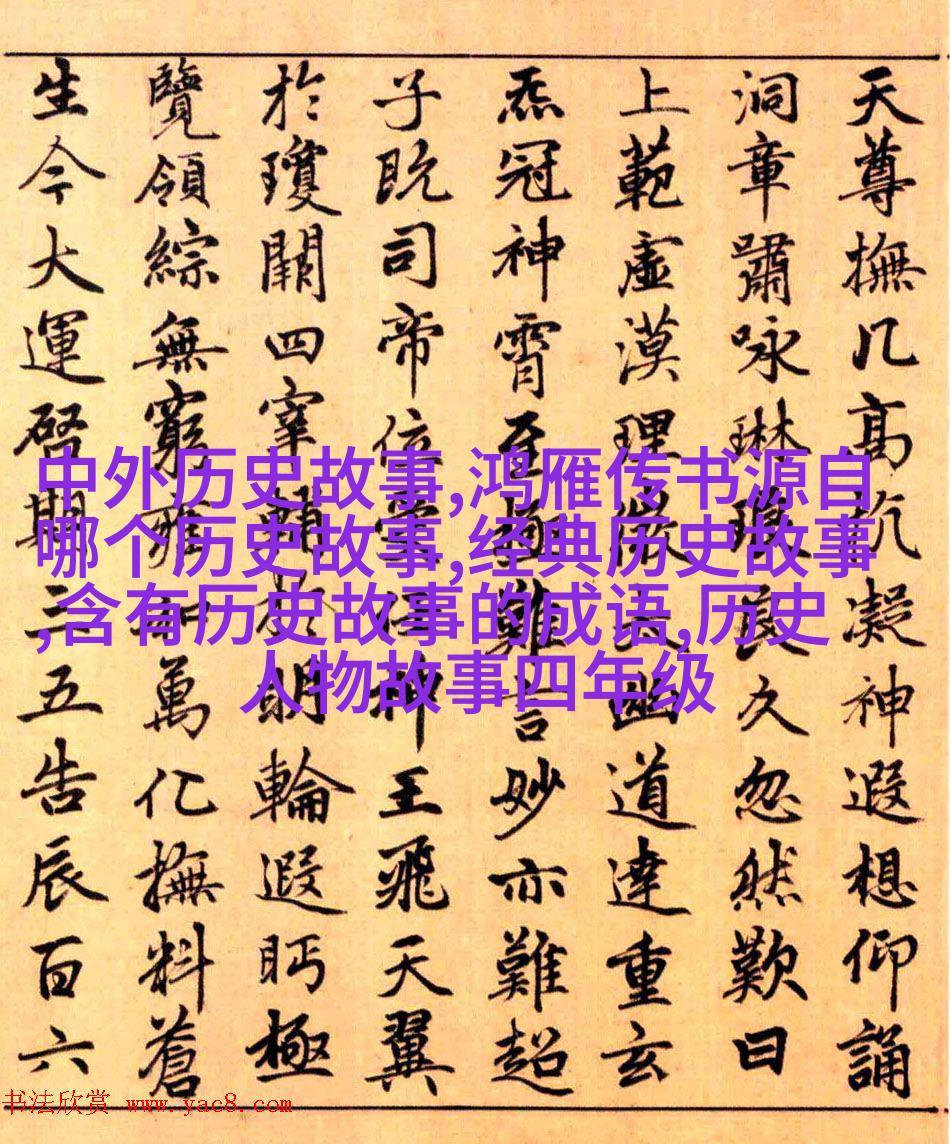 天尊撫几高抗凝神遐想仰誦
洞章嘯咏琳瓊良久忽然歎曰
上範虛漠理微太幽道達重玄
炁冠神霄至極難言妙亦難超
子既司帝位神王飛天翼
於瓊闕四宰顯明輪遐眄極
覽領綜無窮萬化撫料蒼
生今大運啓期三五告辰百六
中外历史故事,鸿雁传书源自
哪个历史故事,经典历史故事
,含有历史故事的成语,历史
人物故事四年级
书法欣赏 www.yac8.com